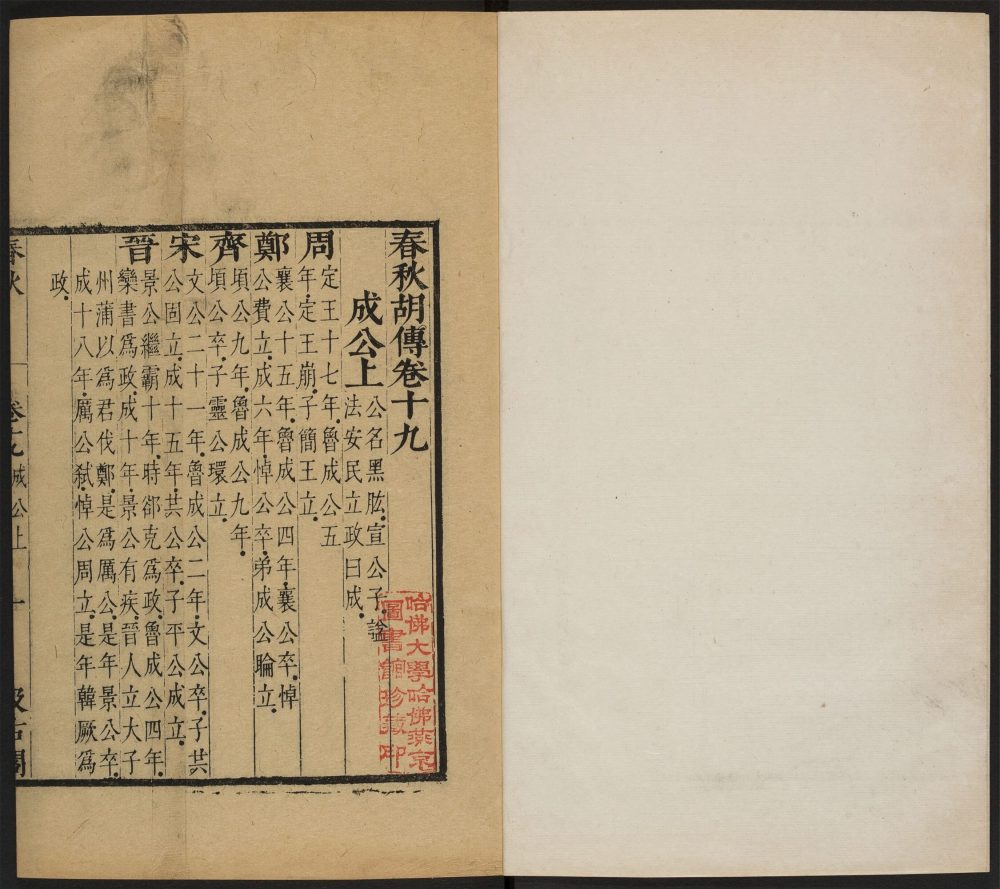 春秋胡傳卷十九
成公上
公名黑肱宣公子諡
法安民立政曰成
周
定王十七年魯成公五
年定王崩子簡王立
鄭
襄公十五年魯成公四年襄公卒悼
公費立成六年悼公卒弟成公睔立
齊
頃公九年魯成公九年
頃公卒子靈公環立
宋
文公二十一年魯成公二年文公卒子共
公固立成十五年共公卒子平公成立
晉
景公繼霸十年時郤克爲政魯成公四年
欒書爲政成十年景公有疾晉人立大子
州蒲以爲君伐鄭是爲厲公是年景公卒
成十八年厲公弒悼公周立是年韓厥爲
政
春秋
卷十九
成公上
一
汲古閣
哈佛大學哈佛燕京
圖書館珍藏印